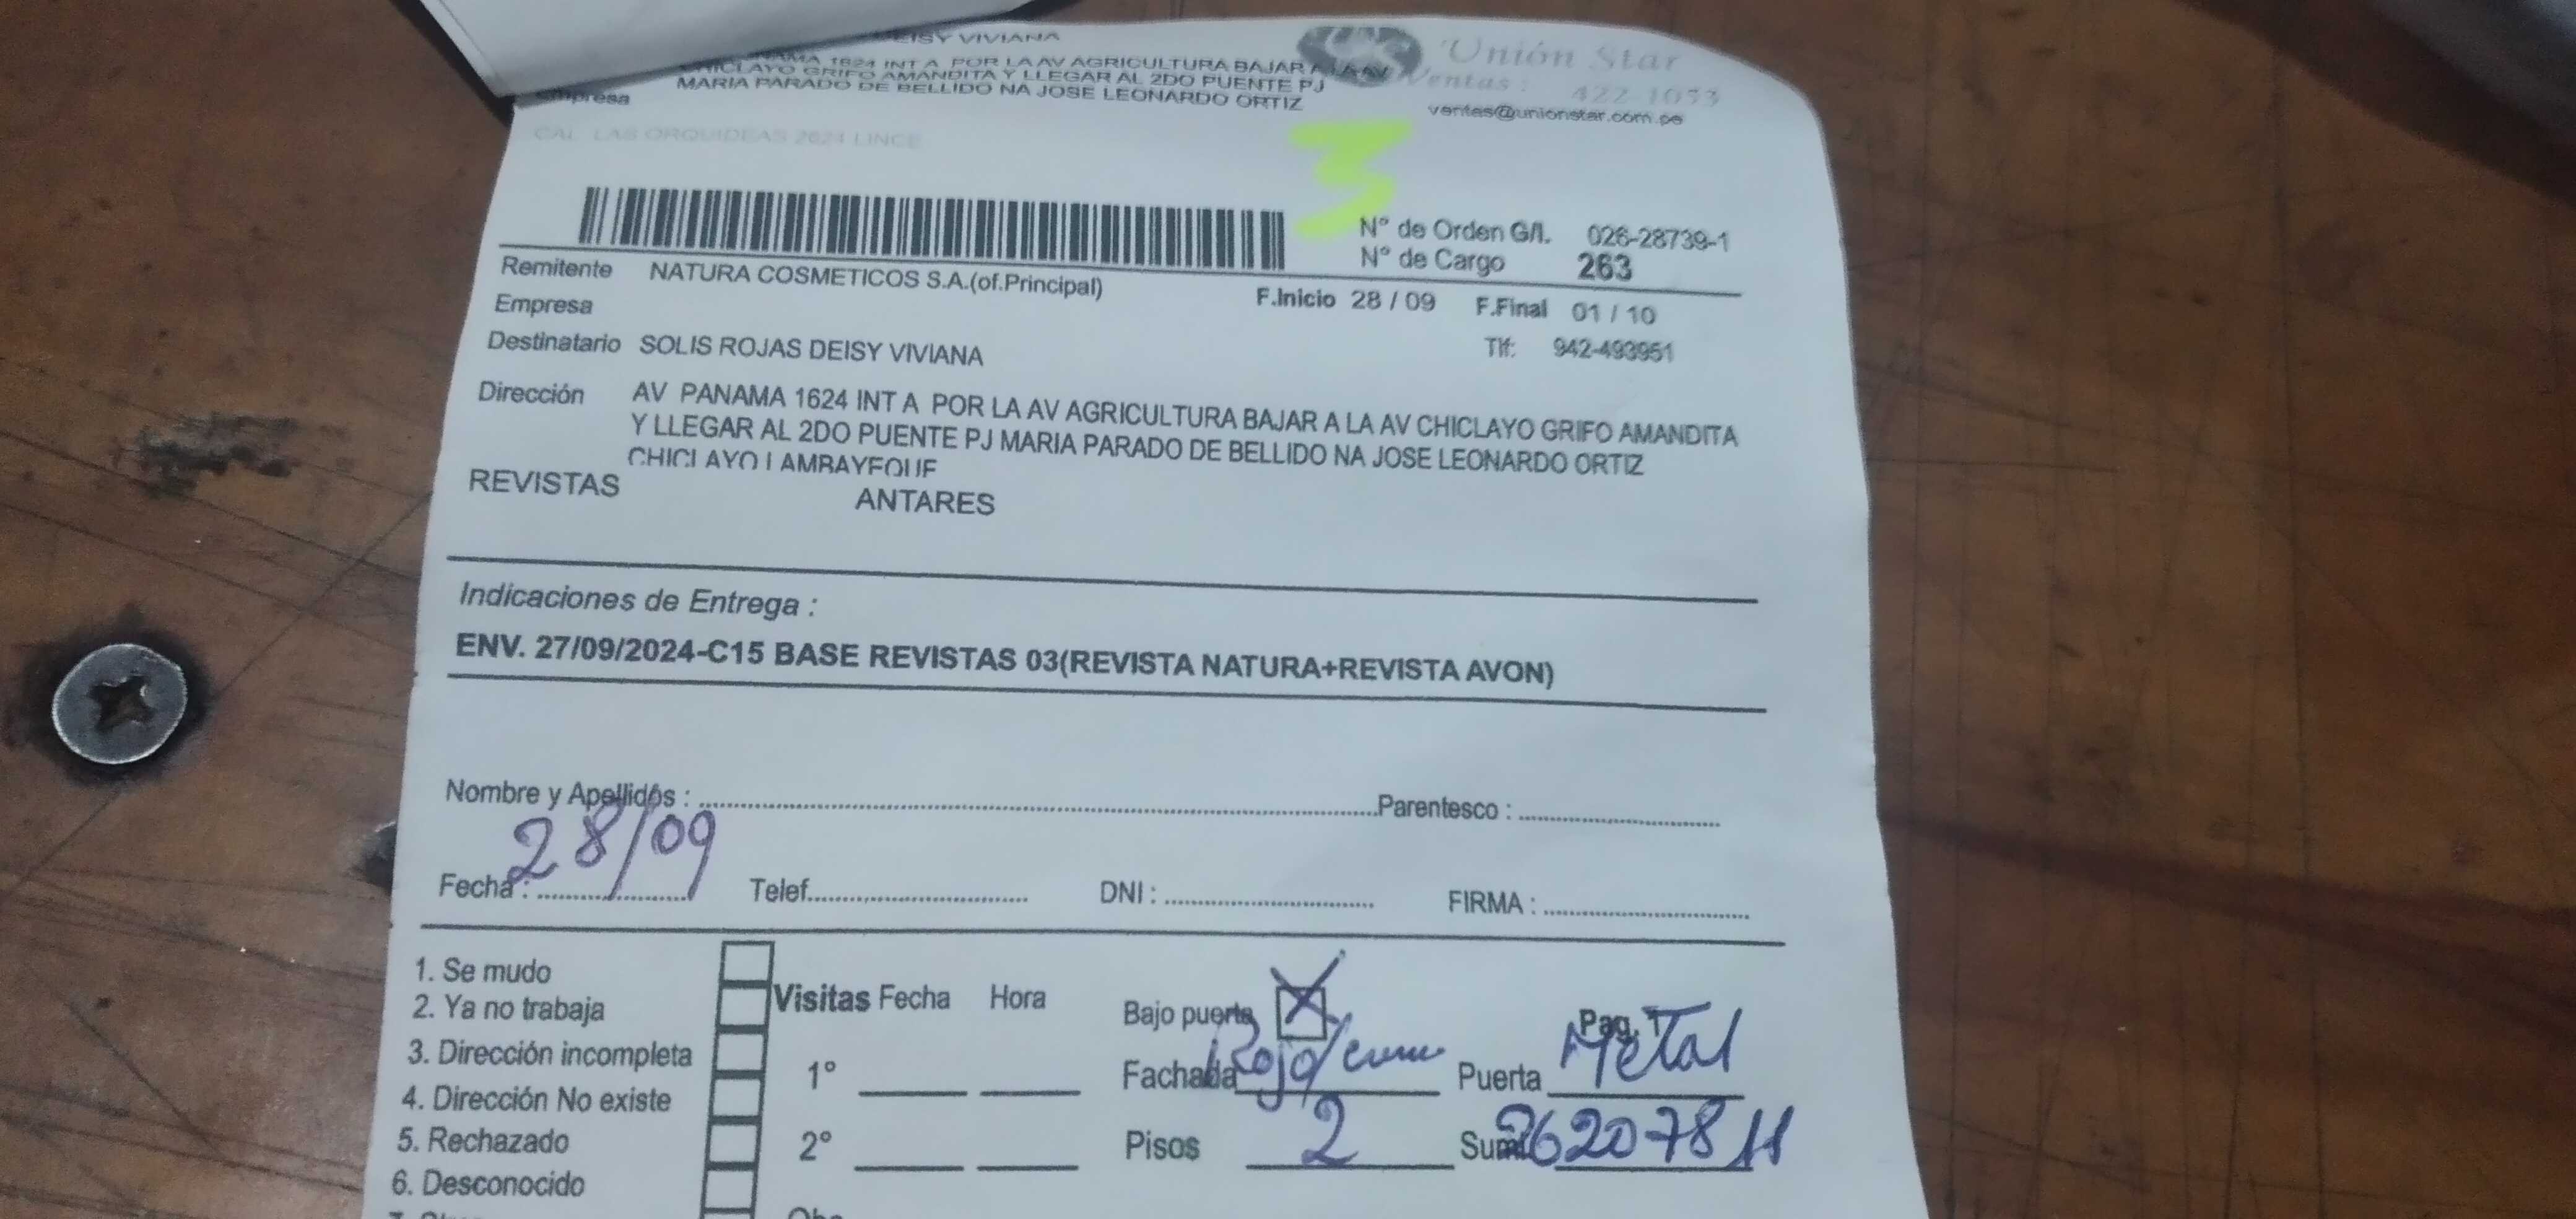 EISY VIVIANA
AMA 1624 INT A POR LA AV AGRICULTURA BAJAR A LA AV
CHICLAYO GRIFO AMANDITA Y LLEGAR AL 2DO PUENTE PJ
MARIA PARADO DE BELLIDO NA JOSE LEONARDO ORTIZ
Empresa
CAL LAS ORQUIDEAS 2624 LINCE
Unión Star
Ventas : 422-1053
ventas@unionstar.com.pe
3
N° de Orden G/I. 026-28739-1
N° de Cargo 263
Remitente NATURA COSMETICOS S.A.(of.Principal)
Empresa
F.Inicio 28 / 09 F.Final 01 / 10
Destinatario SOLIS ROJAS DEISY VIVIANA
Tlf: 942-493951
Dirección AV PANAMA 1624 INT A POR LA AV AGRICULTURA BAJAR A LA AV CHICLAYO GRIFO AMANDITA
Y LLEGAR AL 2DO PUENTE PJ MARIA PARADO DE BELLIDO NA JOSE LEONARDO ORTIZ
CHICLAYO LAMBAYEQUE
REVISTAS ANTARES
Indicaciones de Entrega :
ENV. 27/09/2024-C15 BASE REVISTAS 03(REVISTA NATURA+REVISTA AVON)
Nombre y Apellidos : Parentesco :
Fecha : 28/09 Telef. DNI : FIRMA :
1. Se mudo
2. Ya no trabaja
3. Dirección incompleta
4. Dirección No existe
5. Rechazado
6. Desconocido
Visitas Fecha Hora
1°
2°
Bajo puerta X Pag. 1
Fachada Rojo/ Puerta Metal
Pisos 2 Sumi